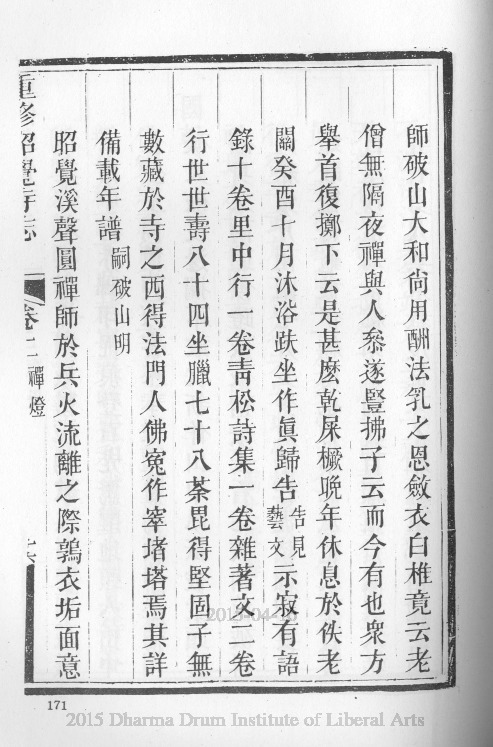 師破山大和尙用酬法乳之恩斂衣白椎竟云老
僧無隔夜禪與人叅遂豎拂子云而今有也衆方
舉首復擲下云是甚麽乾屎橛晚年休息於佚老
關癸酉十月沐浴趺坐作眞歸告告見藝文示寂有語
錄十卷里中行一卷靑松詩集一卷雜著文二卷
行世世壽八十四坐臘七十八茶毘得堅固子無
數藏於寺之西得法門人佛寃作窣堵塔焉其詳
備載年譜嗣破山明
昭覺溪聲圓禪師於兵火流離之際鶉衣垢面意
重修昭覺寺志 卷二 禪燈
171
2015-04-
2015 Dharma Drum Institute of Liberal Arts